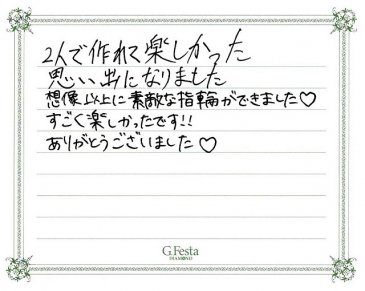 2人で作れて楽しかった
思い出になりました
想像以上に素敵な指輪ができました♡
すごく楽しかったです!!
ありがとうございました♡
G.Festa
DIAMOND